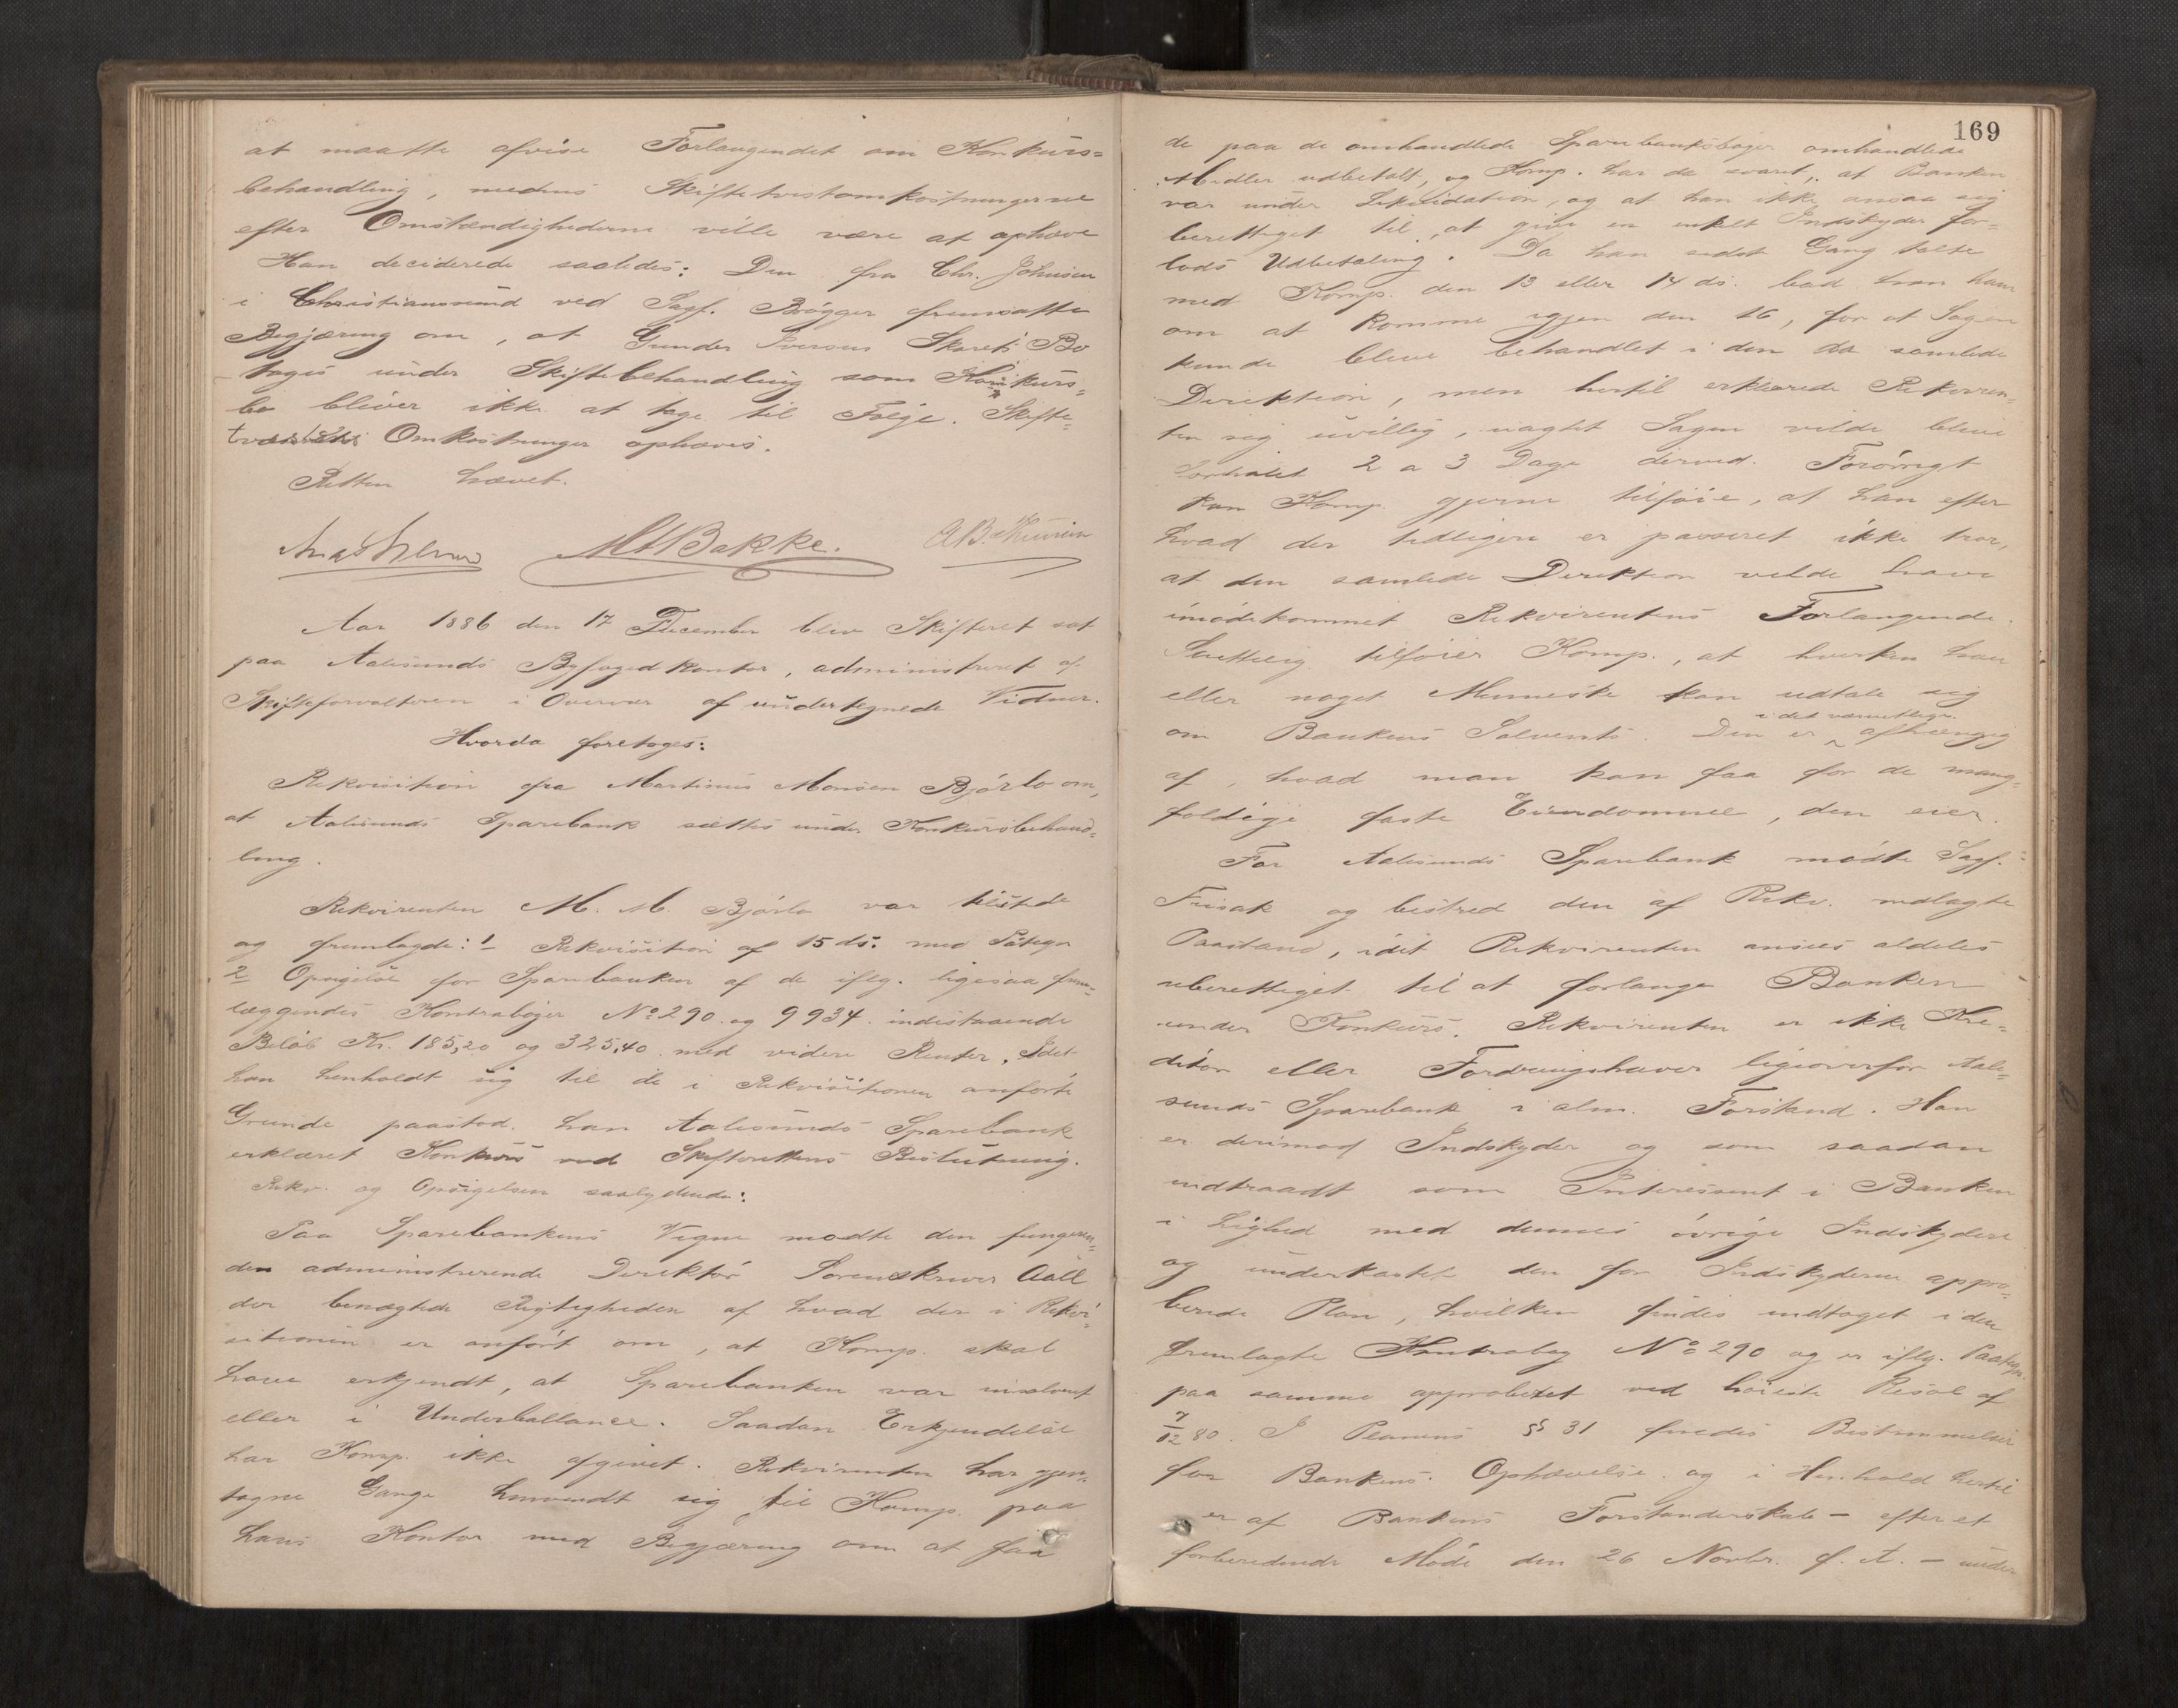 at maatte afvise Forlangendet om Konkurs=
behandling, medens Skiftetvistomkostningerne
efter Omstændighederne ville være at ophæve
Han deciderede saaledes: Den fra Chr. Johnsen
i Christianssund ved Sagf. Brøgger fremsatte
Begjæring om, at Gunder Iversens Skarets Bo
tages under Skiftebehandling som Konkurs=
bo bliver ikke at tage til Følge. Skifte=
tvistens Omkostninger ophæves.
Retten hævet.
M A Bakke.
Aar 1886 den 17 December blev Skifteret sat
paa Aalesunds Byfogedkontor, administreret af
Skifteforvalteren i Overvær af undertegnede Vidner.
Hvorda foretoges:
Rekvisition fra Martinus Monsen Bjørlo om,
at Aalesunds Sparebank sættes under Konkursbehand=
ling.
Rekvirenten M. M. Bjørlo var tilstede
og fremlagde: 1 Rekvisition af 15 ds. med Påtegn
2 Opsigelse for Sparebanken af de iflg. ligesaa frem=
læggendes Kontrabøger No 290 og 9934 indestaaende
Beløb Kr. 185,20 og 325,40 med videre Renter. Idet
han henholdt sig til de i Rekvisitionen anførte
Grunde paastod han Aalesunds Sparebank
erklæret Konkurs ved Skifterettens Beslutning.
Rekv. og Opsigelsen saalydende:
Paa Sparebankens Vegne mødte den fungeren=
den administrerende Direktør Sorenskriver Aall
der benægtede Rigtigheden af hvad der i Rekvi=
sitionen er anført om, at Komp. skal
have erkjendt, at Sparebanken var insolvent
eller i Underballance. Saadan Erkjendelse
har Komp. ikke afgivet. Rekvirenten har gjen=
tagne Gange henvendt sig til Komp. paa
hans Kontor med Begjæring om at faa
169
de paa de omhandlede Sparebanksbøger omhandlede
Midler udbetalt, og Komp. har da svaret, at Banken
var under Likvidation, og at han ikke ansaa sig
berettiget til at give en enkelt Indskyder for=
lods Udbetaling. Da han sidst Gang talte
med Komp. den 13 eller 14 ds. bad han ham
om at komme igjen den 16, for at Sagen
kunde blive behandlet i den da samlede
Direktion, men hertil erklærede Rekviren=
ten sig uvillig, uagtet Sagen vilde blive
forhalet 2 a 3 Dage derved. Forøvrigt
kan Komp. gjerne tilføie, at han efter
hvad der tidligere er passeret ikke tror,
at den samlede Direktion vilde have
imødekommet Rekvirentens Forlangende.
Sluttelig tilføier Komp., at hverken han
eller noget Menneske kan udtale sig
om Bankens Solvents. Den er i det væsentlige afhængig
af, hvad man kan faa for de mang=
foldige faste Eiendomme, den eier.
For Aalesunds Sparebank mødte Sagf.
Frisak og bestred den af Rekv. nedlagte
Paastand, idet Rekvirenten ansees aldeles
uberettiget til at forlange Banken
under Konkurs. Rekvirenten er ikke Kre=
ditor eller Fordringshaver ligeoverfor Aale=
sunds Sparebank i alm. Forstand. Han
er derimod Indskyder og som saadan
indtraadt som Interessent i Banken
i Lighed med dennes øvrige Indskydere
og underkastet den for Indskyderne appro=
berede Plan, hvilken findes indtaget i den
fremlagte Kontrabog No 290 og er iflg. Paategn.
paa samme approberet ved høieste Resol. af
7/12 80. I Planens § 31 findes Bestemmelser
for Bankens Ophævelse og i Henhold hertil
er af Bankens Forstanderskab – efter et
forberedende Møde den 26 Novbr. f. A. – under